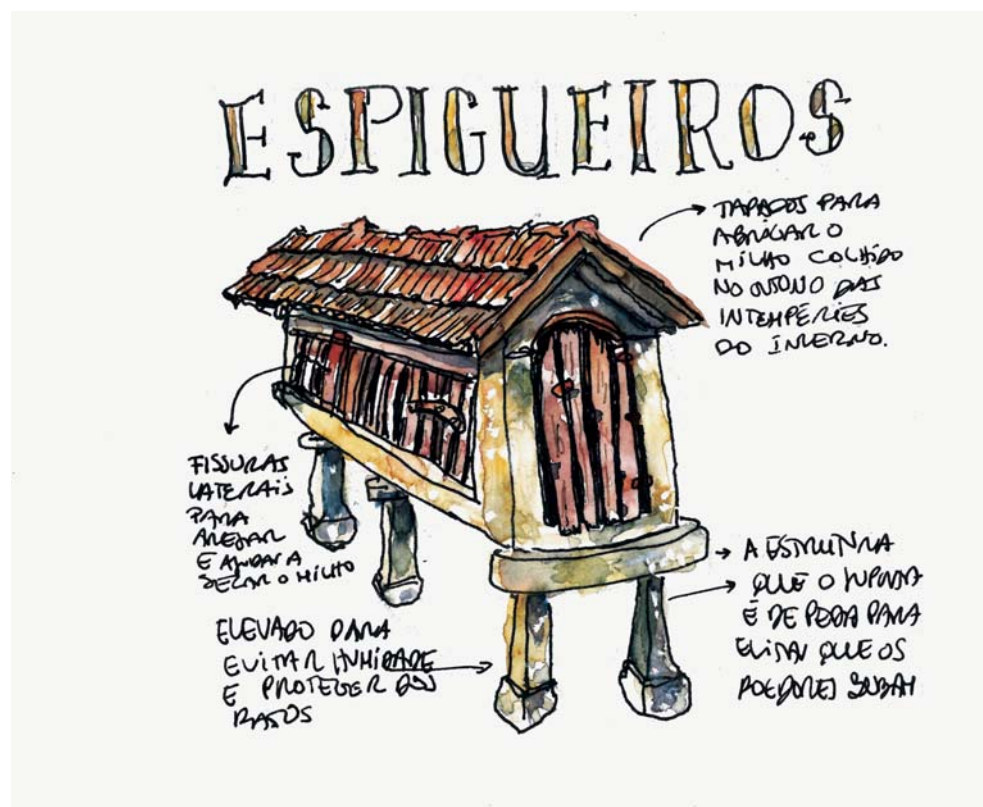 ESPIGUEIROS
TAPADOS PARA
ABRIGAR O
MILHO COLHIDO
NO OUTONO DAS
INTEMPÉRIES
DO INVERNO.
FISSURAS
LATERAIS
PARA
AREJAR
E AJUDAR A
SECAR O MILHO
ELEVADO PARA
EVITAR HUMIDADE
E PROTEGER DOS
RATOS
A ESTRUTURA
QUE O SUPORTA
É DE PEDRA PARA
EVITAR QUE OS
ROEDORES SUBAM